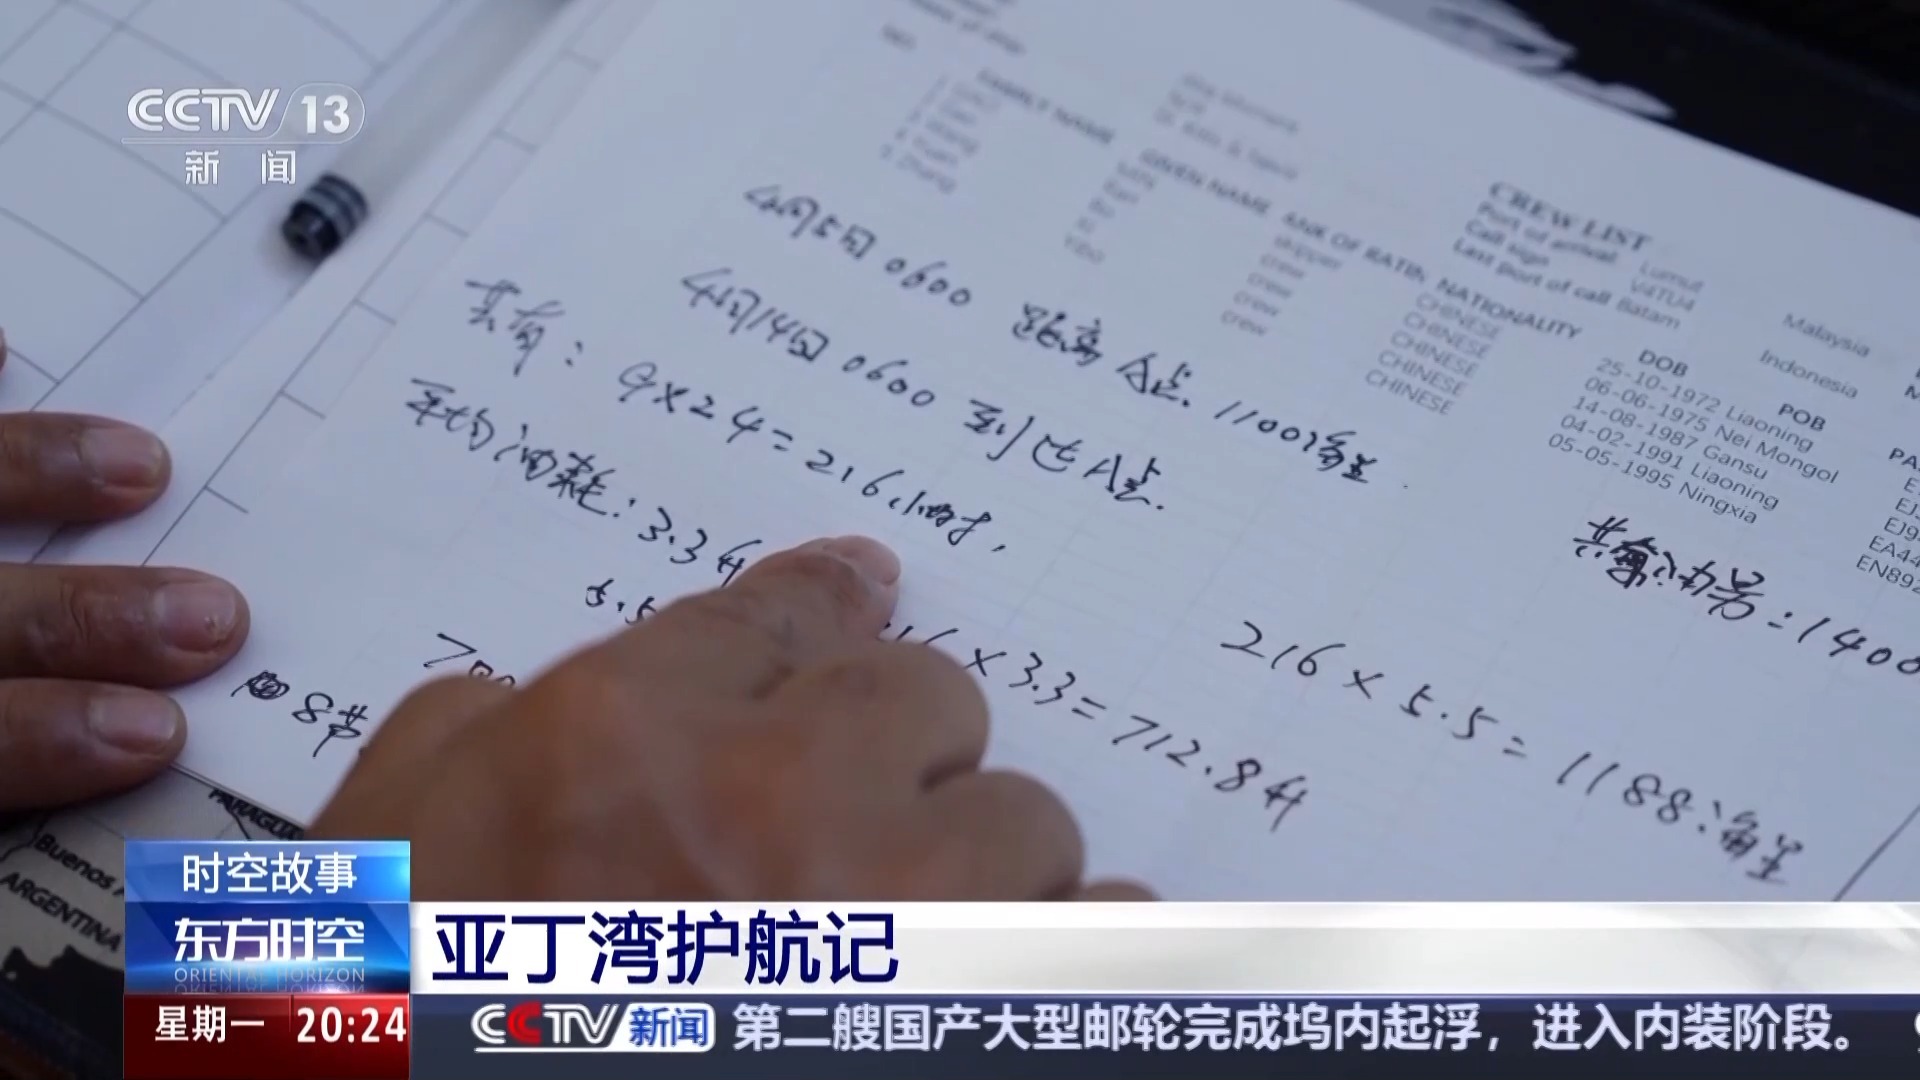 CCTV 13
新闻
CREW LIST
Port of arrival Lumut Malaysia
Call sign V4TU4
Last port of call Batam Indonesia
FAMILY NAME GIVEN NAME RANK OF RATIN NATIONALITY DOB POB
skipper CHINESE 25-10-1972 Liaoning
crew CHINESE 06-06-1975 Nei Mongol
crew CHINESE 14-08-1987 Gansu
crew CHINESE 04-02-1991 Liaoning
crew CHINESE 05-05-1995 Ningxia
4月5日 0600 距离A点. 1100海里
4月14日 0600 到达A点.
共有: 9×24=216.小时,
平均油耗: 3.3升
5.5
216×5.5=1188.海里
×3.3=712.8升
8节
:1400
PARAGUA
Buenos A
ARGENTINA
时空故事
东方时空
ORIENTAL HORIZON
亚丁湾护航记
星期一 20:24
CCTV新闻 第二艘国产大型邮轮完成坞内起浮，进入内装阶段。